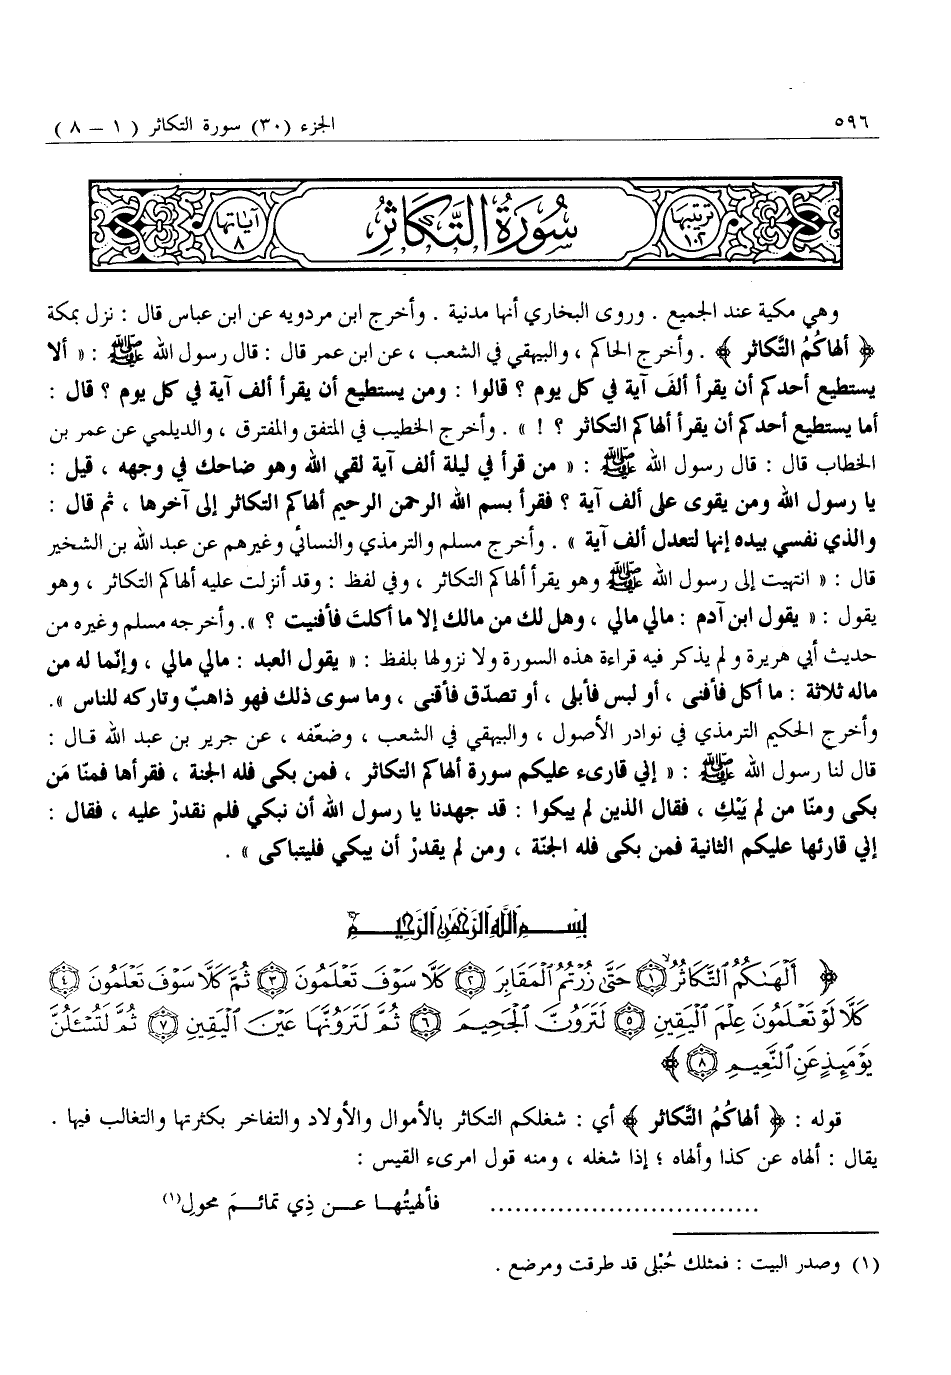 ٥٩٦
الجزء (٣٠) سورة التكاثر ( ١ – ٨ )
ترتيبها ١٠٢
سُورَةُ التَّكَاثُرِ
آياتها ٨
وهي مكية عند الجميع . وروى البخاري أنها مدنية . وأخرج ابن مردويه عن ابن عباس قال : نزل بمكة
﴿ ألهاكُمُ التَّكاثر ﴾ . وأخرج الحاكم ، والبيهقي في الشعب ، عن ابن عمر قال : قال رسول الله ﷺ : « ألا
يستطيع أحدكم أن يقرأ ألفَ آية في كل يوم ؟ قالوا : ومن يستطيع أن يقرأ ألف آية في كل يوم ؟ قال :
أما يستطيع أحدكم أن يقرأ ألهاكم التكاثر ؟ ! » . وأخرج الخطيب في المتفق والمفترق ، والديلمي عن عمر بن
الخطاب قال : قال رسول الله ﷺ : « من قرأ في ليلة ألف آية لقي الله وهو ضاحك في وجهه ، قيل :
يا رسول الله ومن يقوى على ألف آية ؟ فقرأ بسم الله الرحمن الرحيم ألهاكم التكاثر إلى آخرها ، ثم قال :
والذي نفسي بيده إنها لتعدل ألف آية » . وأخرج مسلم والترمذي والنسائي وغيرهم عن عبد الله بن الشخير
قال : « انتهيت إلى رسول الله ﷺ وهو يقرأ ألهاكم التكاثر ، وفي لفظ : وقد أنزلت عليه ألهاكم التكاثر ، وهو
يقول : « يقول ابن آدم : مالي مالي ، وهل لك من مالك إلا ما أكلتَ فأفنيت ؟ ». وأخرجه مسلم وغيره من
حديث أبي هريرة و لم يذكر فيه قراءة هذه السورة ولا نزولها بلفظ : « يقول العبد : مالي مالي ، وإنّما له من
ماله ثلاثة : ما أكل فأفنى ، أو لبس فأبلى ، أو تصدّق فأقنى ، وما سوى ذلك فهو ذاهبٌ وتاركه للناس ».
وأخرج الحكيم الترمذي في نوادر الأصول ، والبيهقي في الشعب ، وضعّفه ، عن جرير بن عبد الله قال :
قال لنا رسول الله ﷺ : « إني قارىء عليكم سورة ألهاكم التكاثر ، فمن بكى فله الجنة ، فقرأها فمنّا مَن
بكى ومنّا من لم يَبْكِ ، فقال الذين لم يبكوا : قد جهدنا يا رسول الله أن نبكي فلم نقدرْ عليه ، فقال :
إني قارئها عليكم الثانية فمن بكى فله الجنّة ، ومن لم يقدرْ أن يبكي فليتباكى » .
بِسْمِ اللَّهِ الرَّحْمَٰنِ الرَّحِيمِ
﴿ أَلْهَىٰكُمُ ٱلتَّكَاثُرُ ۝١ حَتَّىٰ زُرْتُمُ ٱلْمَقَابِرَ ۝٢ كَلَّا سَوْفَ تَعْلَمُونَ ۝٣ ثُمَّ كَلَّا سَوْفَ تَعْلَمُونَ ۝٤
كَلَّا لَوْ تَعْلَمُونَ عِلْمَ ٱلْيَقِينِ ۝٥ لَتَرَوُنَّ ٱلْجَحِيمَ ۝٦ ثُمَّ لَتَرَوُنَّهَا عَيْنَ ٱلْيَقِينِ ۝٧ ثُمَّ لَتُسْـَٔلُنَّ
يَوْمَئِذٍ عَنِ ٱلنَّعِيمِ ۝٨ ﴾
قوله : ﴿ ألهاكُمُ التَّكاثر ﴾ أي : شغلكم التكاثر بالأموال والأولاد والتفاخر بكثرتها والتغالب فيها .
يقال : ألهاه عن كذا وألهاه ؛ إذا شغله ، ومنه قول امرىء القيس :
................................ فألهيتُهـا عـن ذِي تمائـمَ محولِ(١)
(١) وصدر البيت : فمثلك حُبْلى قد طرقت ومرضع .